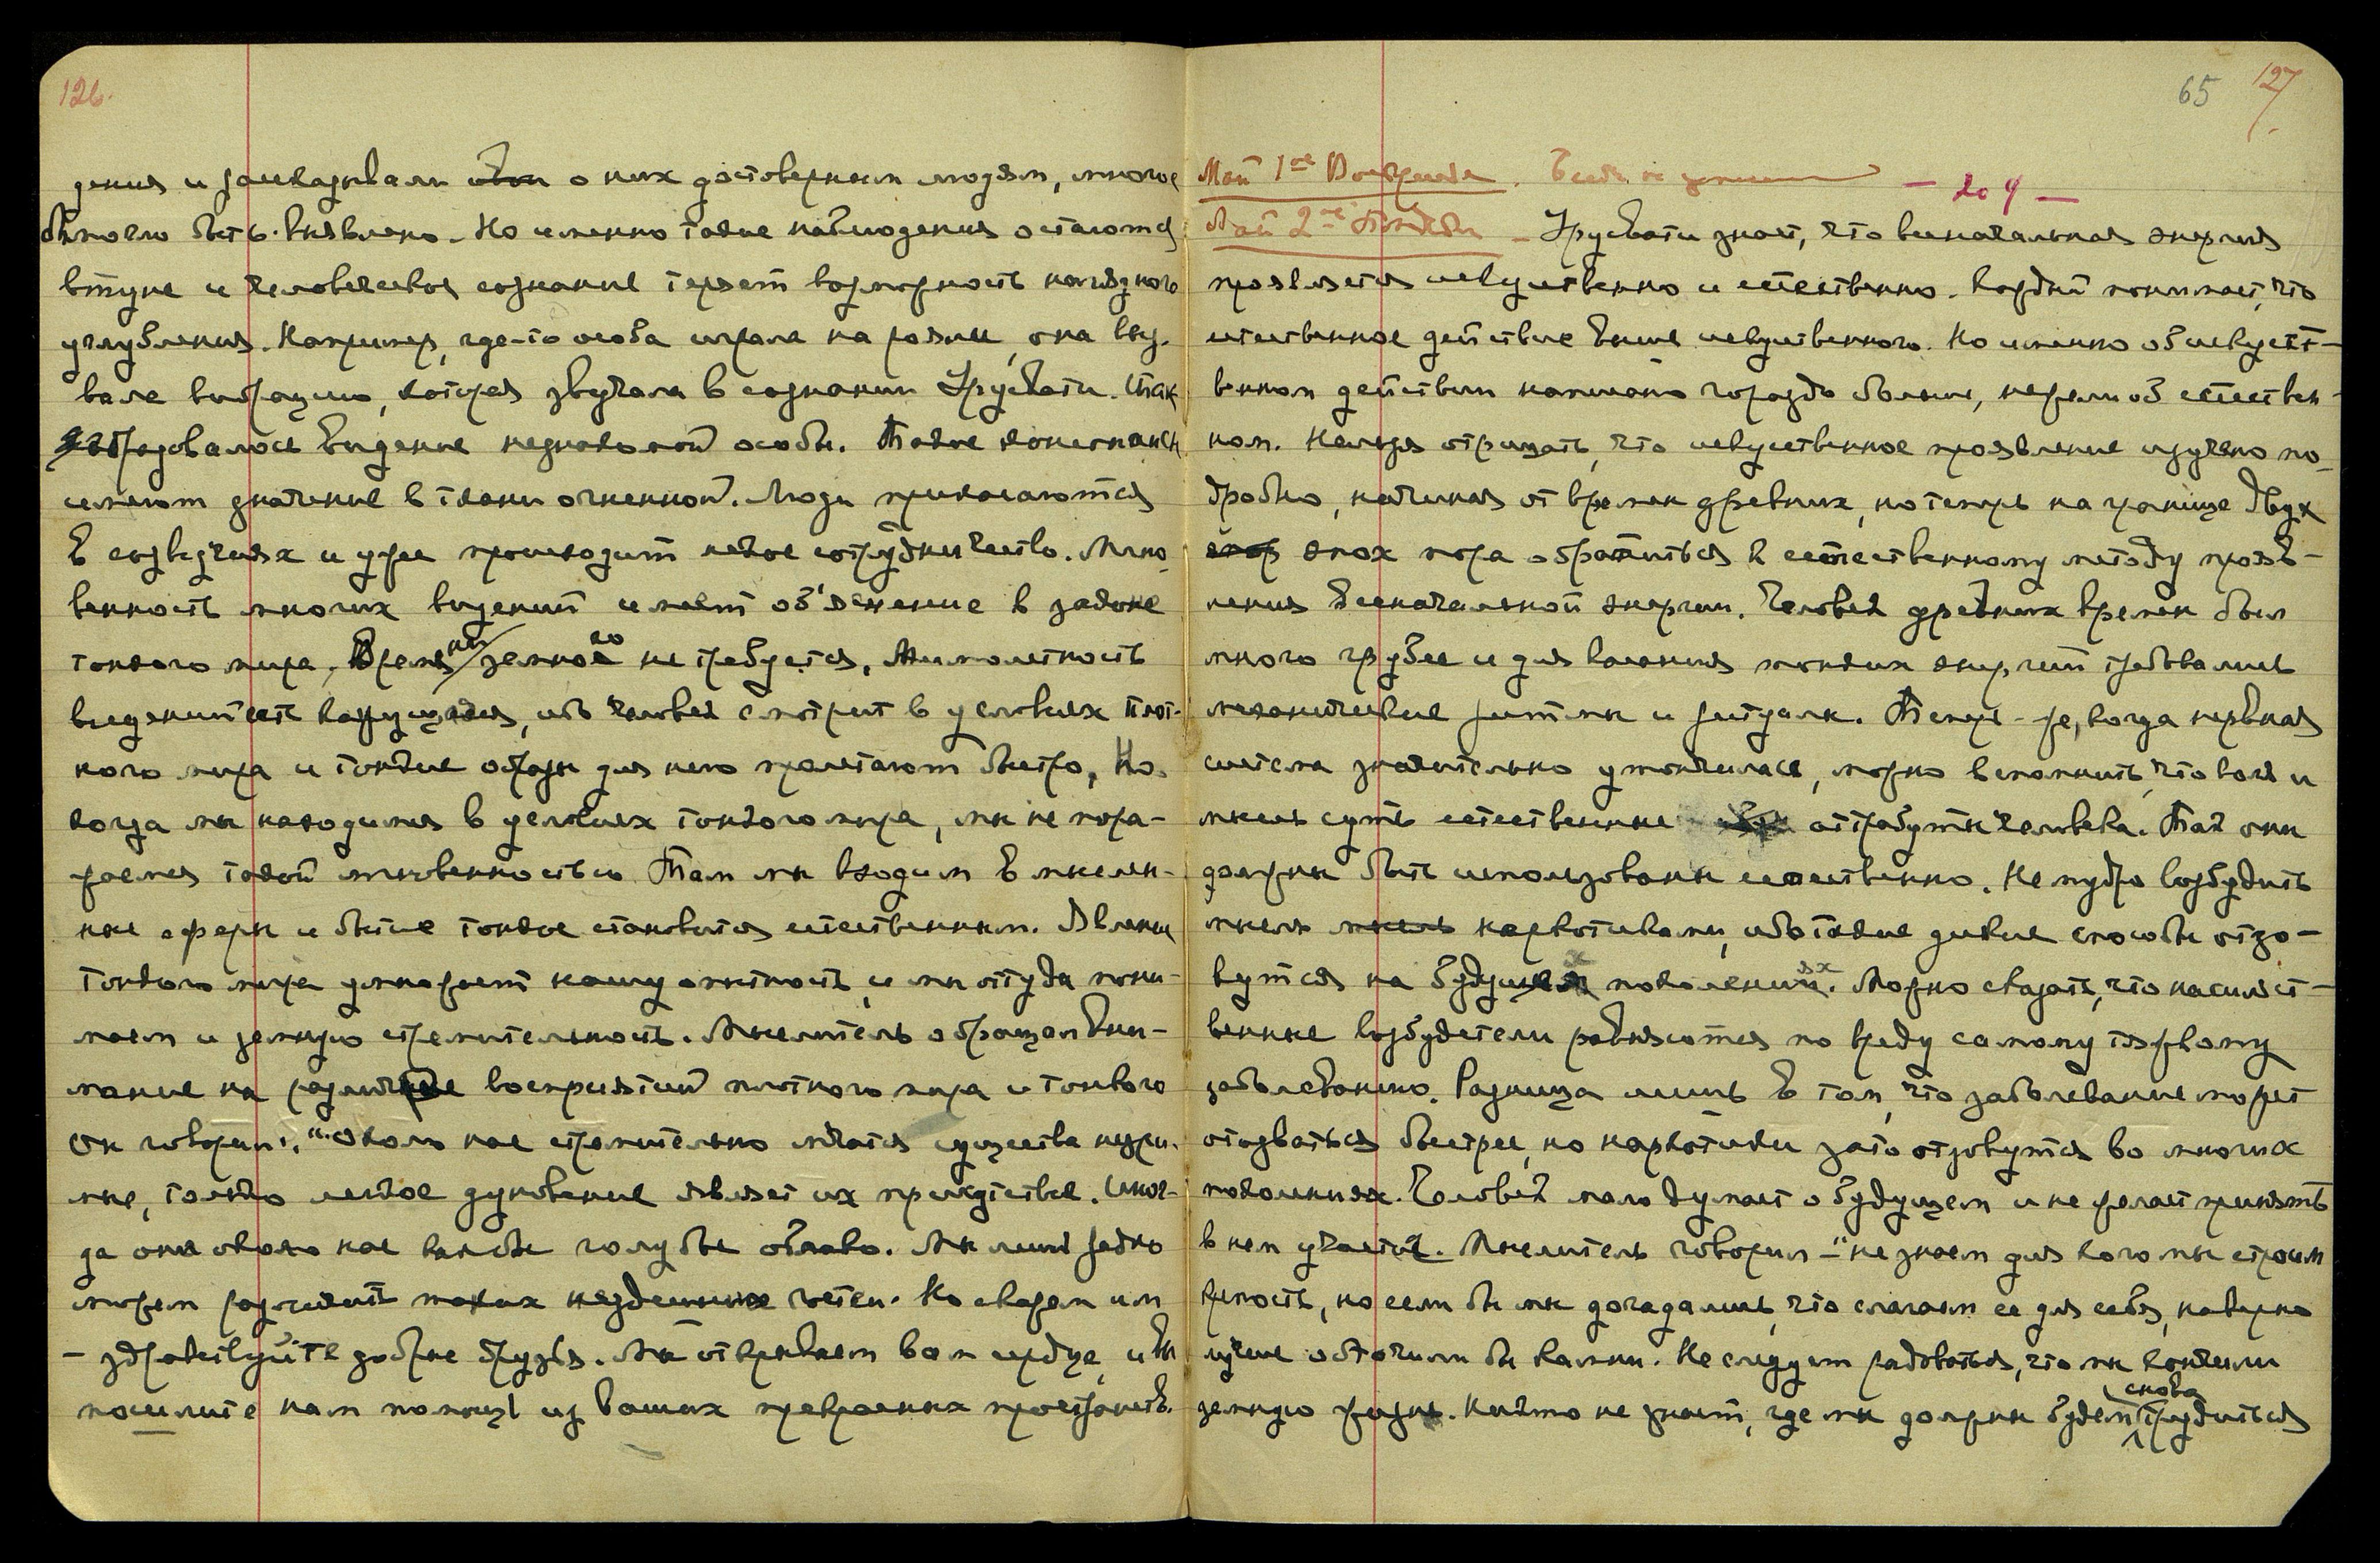 126.
дения и рассказывали о них достоверным людям, многое
бы могло быть выявлено. Но именно такие наблюдения остаются
втуне и человеческое сознание теряет возможность наглядного
углубления. Например, где-то особа играла на рояле, она выз-
вала вибрацию, которая звучала в сознании Урусвати. Итак
образовалось видение незнакомой особы. Такие
имеют значение в ткани огненной. Люди прикасаются
в созвучиях и уже происходит некое сотрудничество. Мгно-
венность многих видений имеет об'яснение в законе
тонкого мира. Время земного не требуется. Мимолетность
видений есть кажущаяся, ибо человек смотрит в условиях плот-
ного мира и тонкие образы для него пролетают быстро, Но
когда мы находимся в условиях тонкого мира, мы не пора-
жаемся такой мгновенностью. Там мы входим в мыслен-
ные сферы и бытие тонкое становится естественным. Явления
тонкого мира умножает нашу опытность, и мы оттуда пони-
маем и земную стремительность. Мыслитель обращал вни-
мание на различие восприятий плотного мира и тонкого
Он говорил: "Около нас стремительно мчатся существа незри-
мые, только легкое дуновение являет их присутствие. Иног-
да они около нас как бы голубые облако. Мы лишь редко
можем разглядеть таких нездешних гостей. Но скажем им
— здравствуйте добрые друзья. Мы открываем вам сердце, и вы
пошлите нам помощь из ваших прекрасных пространств.
65 127
Май 1ое Воскресенье. Беседа не записана
— 209 —
Май 2ое Понед. — Урусвати знает, что всеначальная энергия
проявляется искусственно и естественно. Каждый понимает, что
естественное действие выше искусственного. Но именно об искусст-
венном действии написано гораздо больше, нежели об естествен-
ном. Нельзя отрицать, что искусственное проявление изучено по-
дробно, начиная от времен древних, но теперь на границе двух
эпох пора обратиться к естественному методу прояв-
ления Всеначальной энергии. Человек древних времен был
много грубее и для касания тонких энергий требовались
механические ритмы и ритуалы. Теперь-же, когда нервная
система значительно утончилась, можно вспомнить, что воля и
мысль суть естественные аттрибуты человека. Так они
должны быть использованы естественно. Не мудро возбудить
мысль наркотиками, ибо такие дикие способы отзо-
вутся на будущих поколениях. Можно сказать, что насильст-
венные возбудители равняются по вреду самому тяжкому
заболеванию. Разница лишь в том, что заболевание может
отозваться быстрее, но наркотики зато отзовутся во многих
поколениях. Человек мало думает о будущем и не желает принять
в нем участие. Мыслитель говорил — "не знаем для кого мы строим
крепость, но если бы мы догадались, что слагаем ее для себя, наверно
лучше обточили бы камни. Не следует радоваться, что мы кончили
земную жизнь. Никто не знает, где мы должны будем снова трудиться